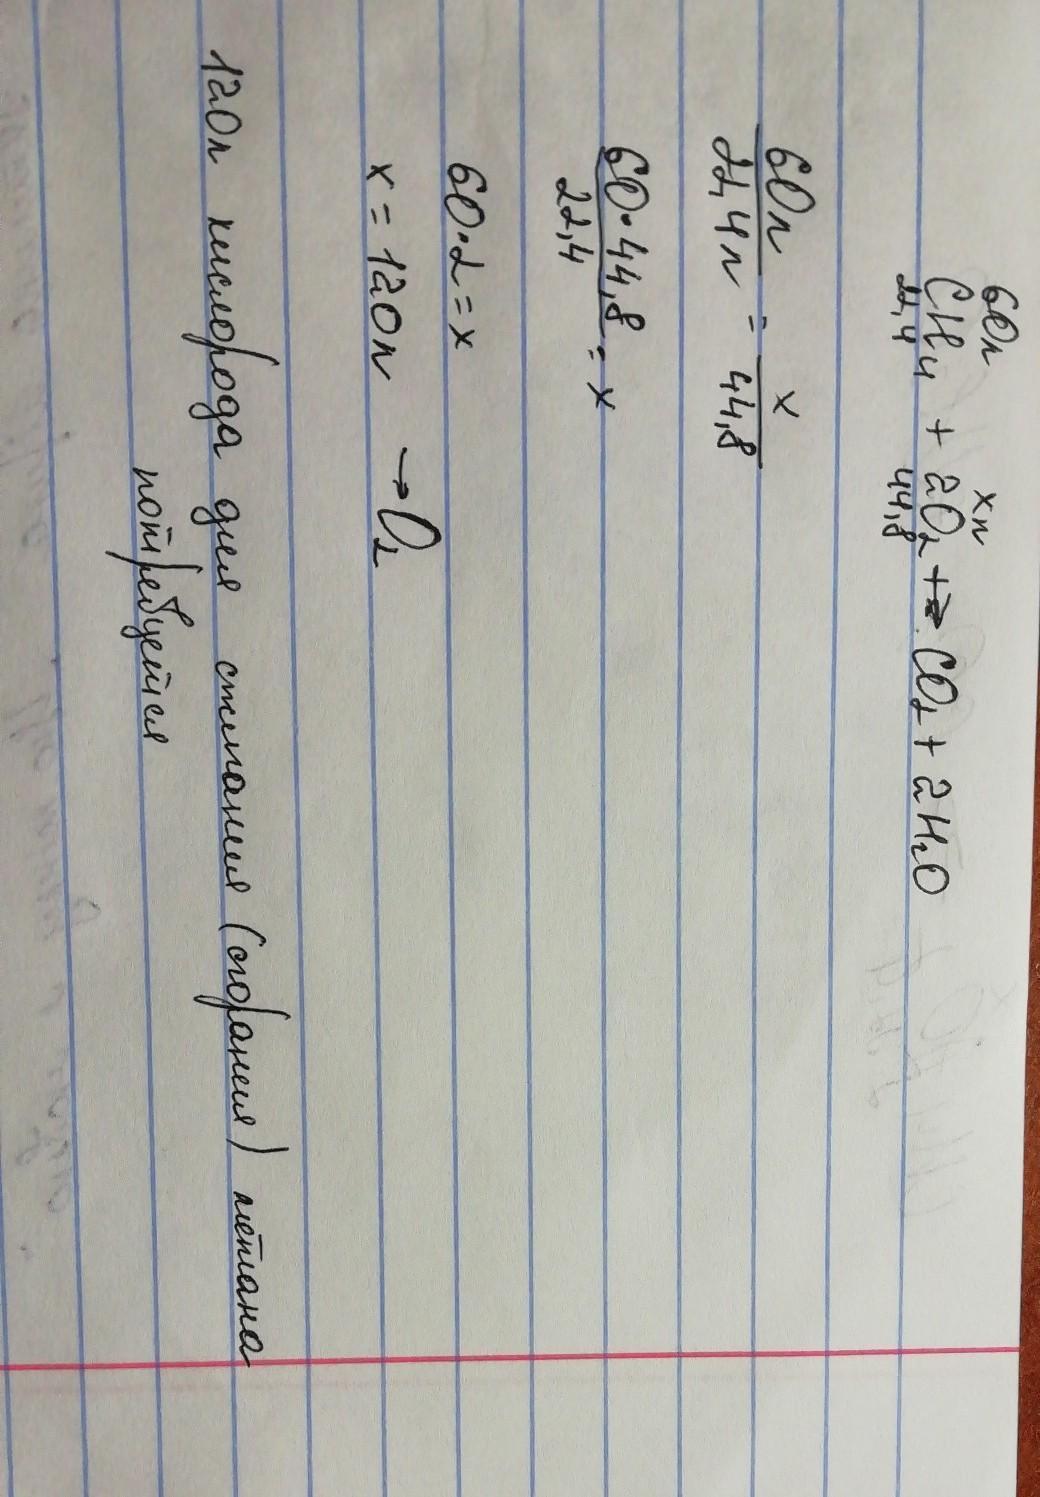 60л xл
CH₄ + 2O₂ → CO₂ + 2H₂O
22,4 44,8
60л / 22,4л = x / 44,8
60·44,8 / 22,4 = x
60·2 = x
x = 120л → O₂
120л кислорода для сжигания (сгорания) метана
потребуется